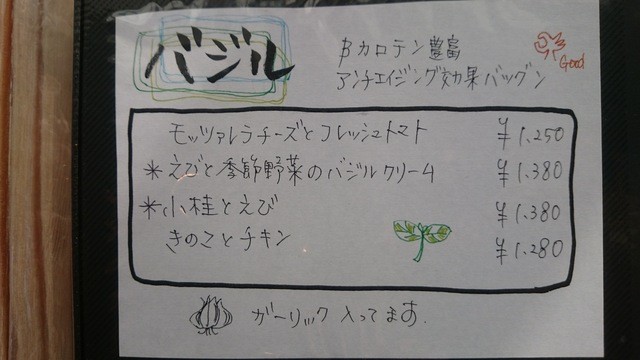 バジル
βカロテン豊富
アンチエイジング効果バツグン
Good
モッツァレラチーズとフレッシュトマト ¥1.250
*えびと季節野菜のバジルクリーム ¥1.380
*小柱とえび ¥1.380
きのことチキン ¥1.280
ガーリック入ってます.